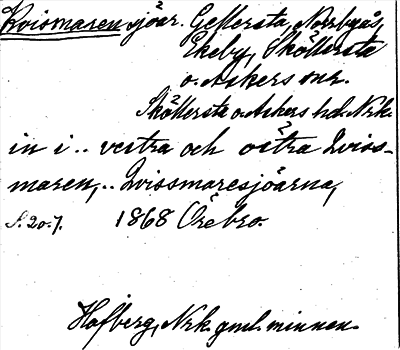 Kvismaren sjöar. Gellersta, Norrbyås,
Ekeby, Sköllersta
o. Askers snr.
Sköllersta o. Askers hd. Nrk.
in i .. vestra och östra Qviss-
maren, .. Qvissmaresjöarna,
S. 20-7. 1868 Örebro.
Hofberg, Nrk. gml. minnen.